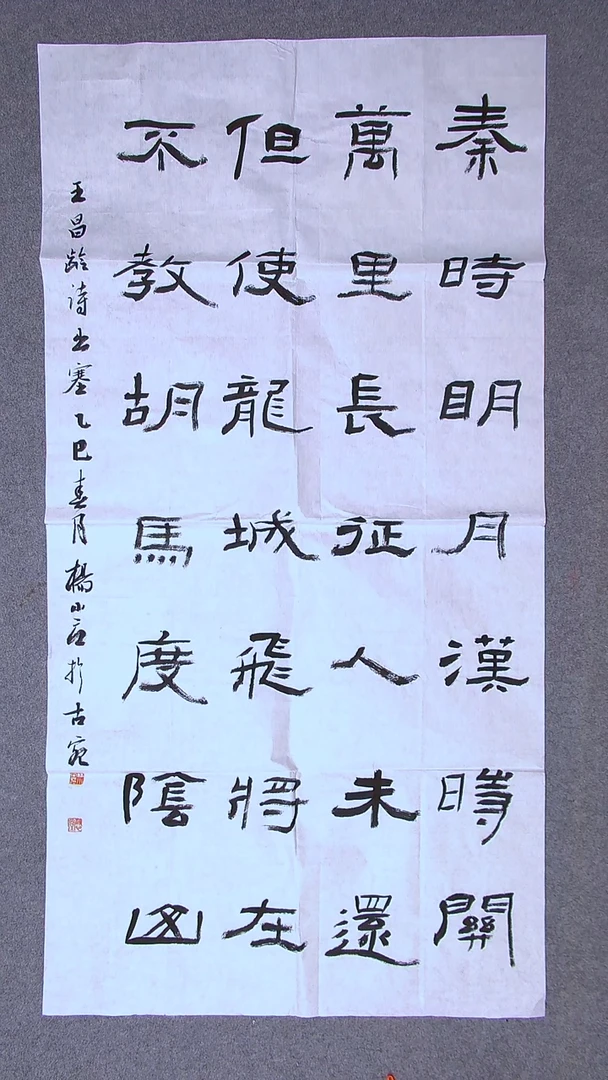 秦時明月漢時關
萬里長征人未還
但使龍城飛將在
不教胡馬度陰山
王昌齡詩出塞乙巳春月楊小於古宛